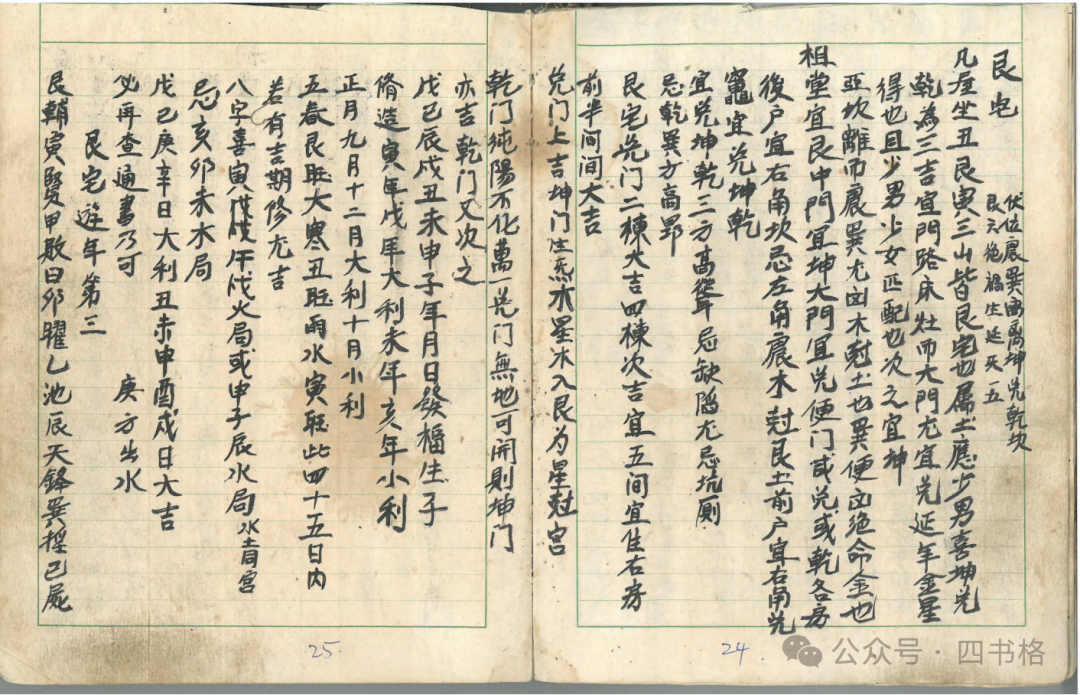 艮宅
伏位震巽离坤兑乾坎
艮六绝祸生延天五
凡屋坐丑艮寅三山皆艮宅也属土應少男喜坤兑
乾為三吉宜門路床灶而大門尤宜兑延年金星
得也且少男少女匹配也次之宜坤
亚坎離而震巽尤凶木尅土也巽便凶绝命金也
祖堂宜艮中門宜坤大門宜兑便门或兑或乾各房
後户宜右角坎忌左角震木尅艮土前户宜右角兑
竈宜兑坤乾
宜兑坤乾三方高聳忌缺陷尤忌坑厕
忌乾巽方高昂
艮宅兑门二棟大吉四棟次吉宜五间宜住右房
前半间间大吉
兑门上吉坤门生炁水星水入艮为星尅宫
乾门纯陽不化萬一兑门無地可開則坤门
亦吉乾门又次之
戊己辰戌丑未申子年月日發福生子
脩造寅年戊年大利未年亥年小利
正月九月十二月大利十月小利
五春艮旺大寒丑旺雨水寅旺此四十五日内
若有吉期修尤吉
八字喜寅午戌火局或申子辰水局水吉宫
忌亥卯未木局
戊己庚辛日大利丑未申酉戌日大吉
必再查通書乃可 庚方出水
艮宅遊年第三
艮輔寅賢甲敗曰卯曜乙池辰天鋒巽控巳屍
25.
24
公众号·四书格